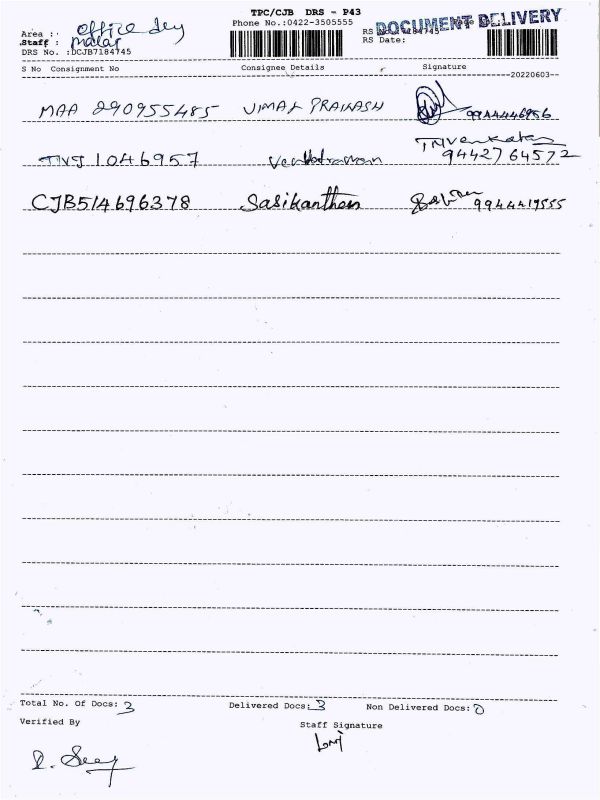 TPC/CJB DRS - P43
DOCUMENT DELIVERY
Area : office dly
Phone No.:0422-3505555
Staff : malar
RS Date:
DRS No. :DCJB7184745
S No Consignment No Consignee Details Signature
20220603
MAA 290955485 VIMAL PRAKASH 9944446956
TVJ 1046957 Venkatraman TNVenkatan 9442764572
CJB514696378 Sasikanthan 9944419555
Total No. Of Docs: 3 Delivered Docs: 3 Non Delivered Docs: 0
Verified By Staff Signature